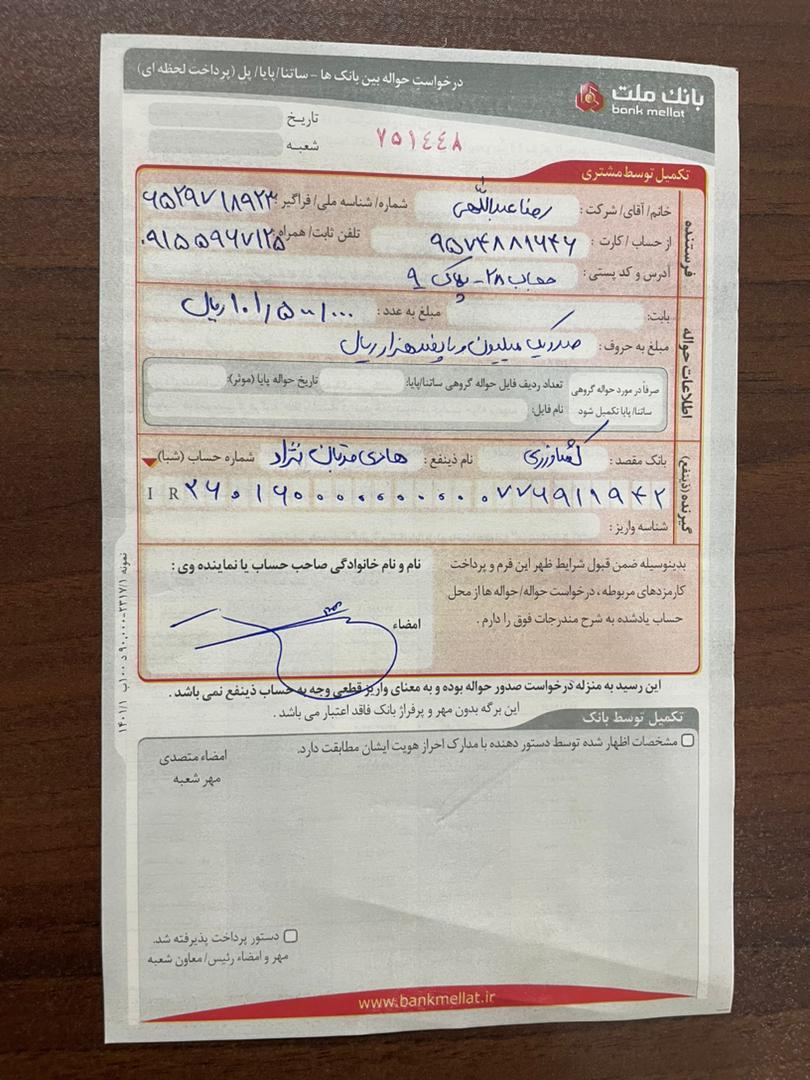 بانک ملت
bank mellat
درخواست حواله بین بانک ها - ساتنا/پایا/پل (پرداخت لحظه ای)
تاریخ
شعبه
۷۵۱۴۴۸
تکمیل توسط مشتری
فرستنده
خانم/آقای/شرکت: رضا عبداللهی شماره/شناسه ملی/فراگیر: ۶۵۲۹۷۱۸۹۲۳
از حساب/کارت: ۹۵۷۴۸۸۱۶۴۶ تلفن ثابت/همراه: ۰۹۱۵۵۹۶۷۱۲۵
آدرس و کد پستی: ۲۸ - پلاک ۹
اطلاعات حواله
بابت: مبلغ به عدد: ۱۰۱/۵۰۰/۰۰۰ ریال
مبلغ به حروف: صد و یک میلیون و پانصد هزار ریال
صرفا در مورد حواله گروهی ساتنا/پایا تکمیل شود
تعداد ردیف فایل حواله گروهی ساتنا/پایا: تاریخ حواله پایا (موثر):
نام فایل:
گیرنده (ذینفع)
بانک مقصد: کشاورزی نام ذینفع: هادی قربان نژاد شماره حساب (شبا)
IR ۲۶۰۱۶۰۰۰۰۰۰۰۰۰۰۰۷۷۶۹۱۱۹۴۲
شناسه واریز:
بدینوسیله ضمن قبول شرایط ظهر این فرم و پرداخت
کارمزدهای مربوطه، درخواست حواله/حواله ها از محل
حساب یادشده به شرح مندرجات فوق را دارم.
نام و نام خانوادگی صاحب حساب یا نماینده وی:
امضاء
این رسید به منزله درخواست صدور حواله بوده و به معنای واریز قطعی وجه به حساب ذینفع نمی باشد.
این برگه بدون مهر و پرفراژ بانک فاقد اعتبار می باشد.
تکمیل توسط بانک
مشخصات اظهار شده توسط دستور دهنده با مدارک احراز هویت ایشان مطابقت دارد.
امضاء متصدی
مهر شعبه
دستور پرداخت پذیرفته شد.
مهر و امضاء رئیس/معاون شعبه
www.bankmellat.ir
نمونه ۲۳۱۷/۱-۹۰،۰۰۰ د ۱۰۰ ب ۱۴۰۱/۱